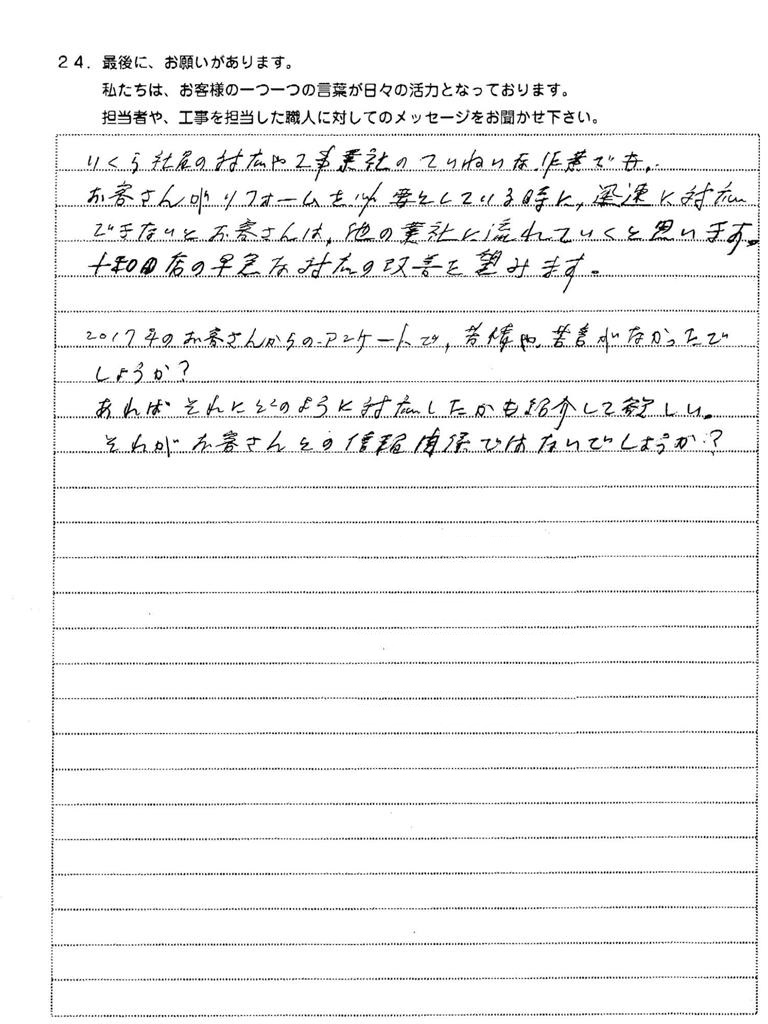 24．最後に、お願いがあります。
私たちは、お客様の一つ一つの言葉が日々の活力となっております。
担当者や、工事を担当した職人に対してのメッセージをお聞かせ下さい。
いくら社員の対応や工事業社のていねいな作業でも、
お客さんがリフォームを必要としている時に、迅速に対応
できないとお客さんは、他の業社に流れていくと思います。
十和田店の早急な対応の改善を望みます。
2017年のお客さんからのアンケートで、苦情や苦言がなかったで
しょうか？
あればそれにどのように対応したかも紹介して欲しい。
それがお客さんとの信頼関係ではないでしょうか？